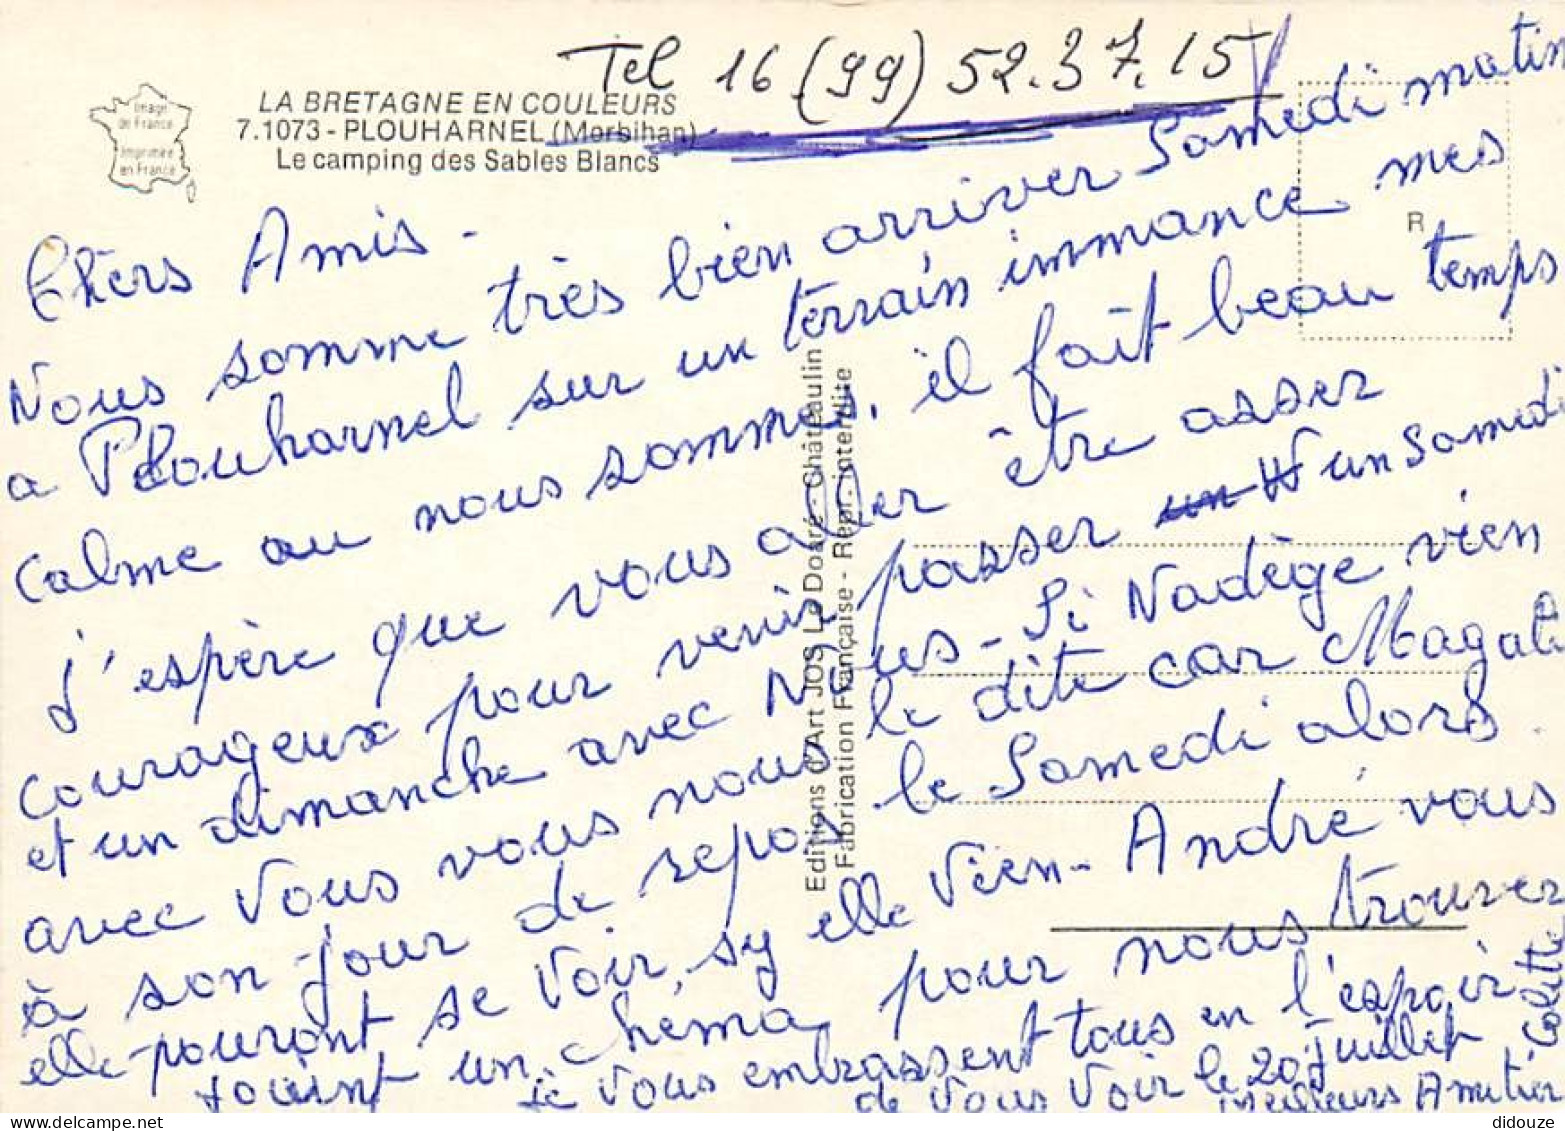 Tel 16 (99) 52.37.15
Image
de France
Imprimée
en France
LA BRETAGNE EN COULEURS
7.1073 - PLOUHARNEL (Morbihan)
Le camping des Sables Blancs
R
Chèrs Amis -
Nous somme très bien arriver Samedi matin
a Plouharnel sur un terrain immance mes
calme au nous sommes, il fait beau temps
j'espère que vous aller être asser
courageux pour venir passer un W un Samedi
et un dimanche avec Nous - Si Nadège vien
avec Vous vous nous le dite car Magali
à son jour de repos le Samedi alors
elle pouront se Voir, sy elle Vien - André vous
joint un chéma pour nous trouver
je vous embrassent tous en l'espoir
de Vous Voir le 20 juillet
meilleurs Amitier
Colette
Editions d'Art JOS Le Doaré - Châteaulin
Fabrication Française - Repr. interdite
didouze